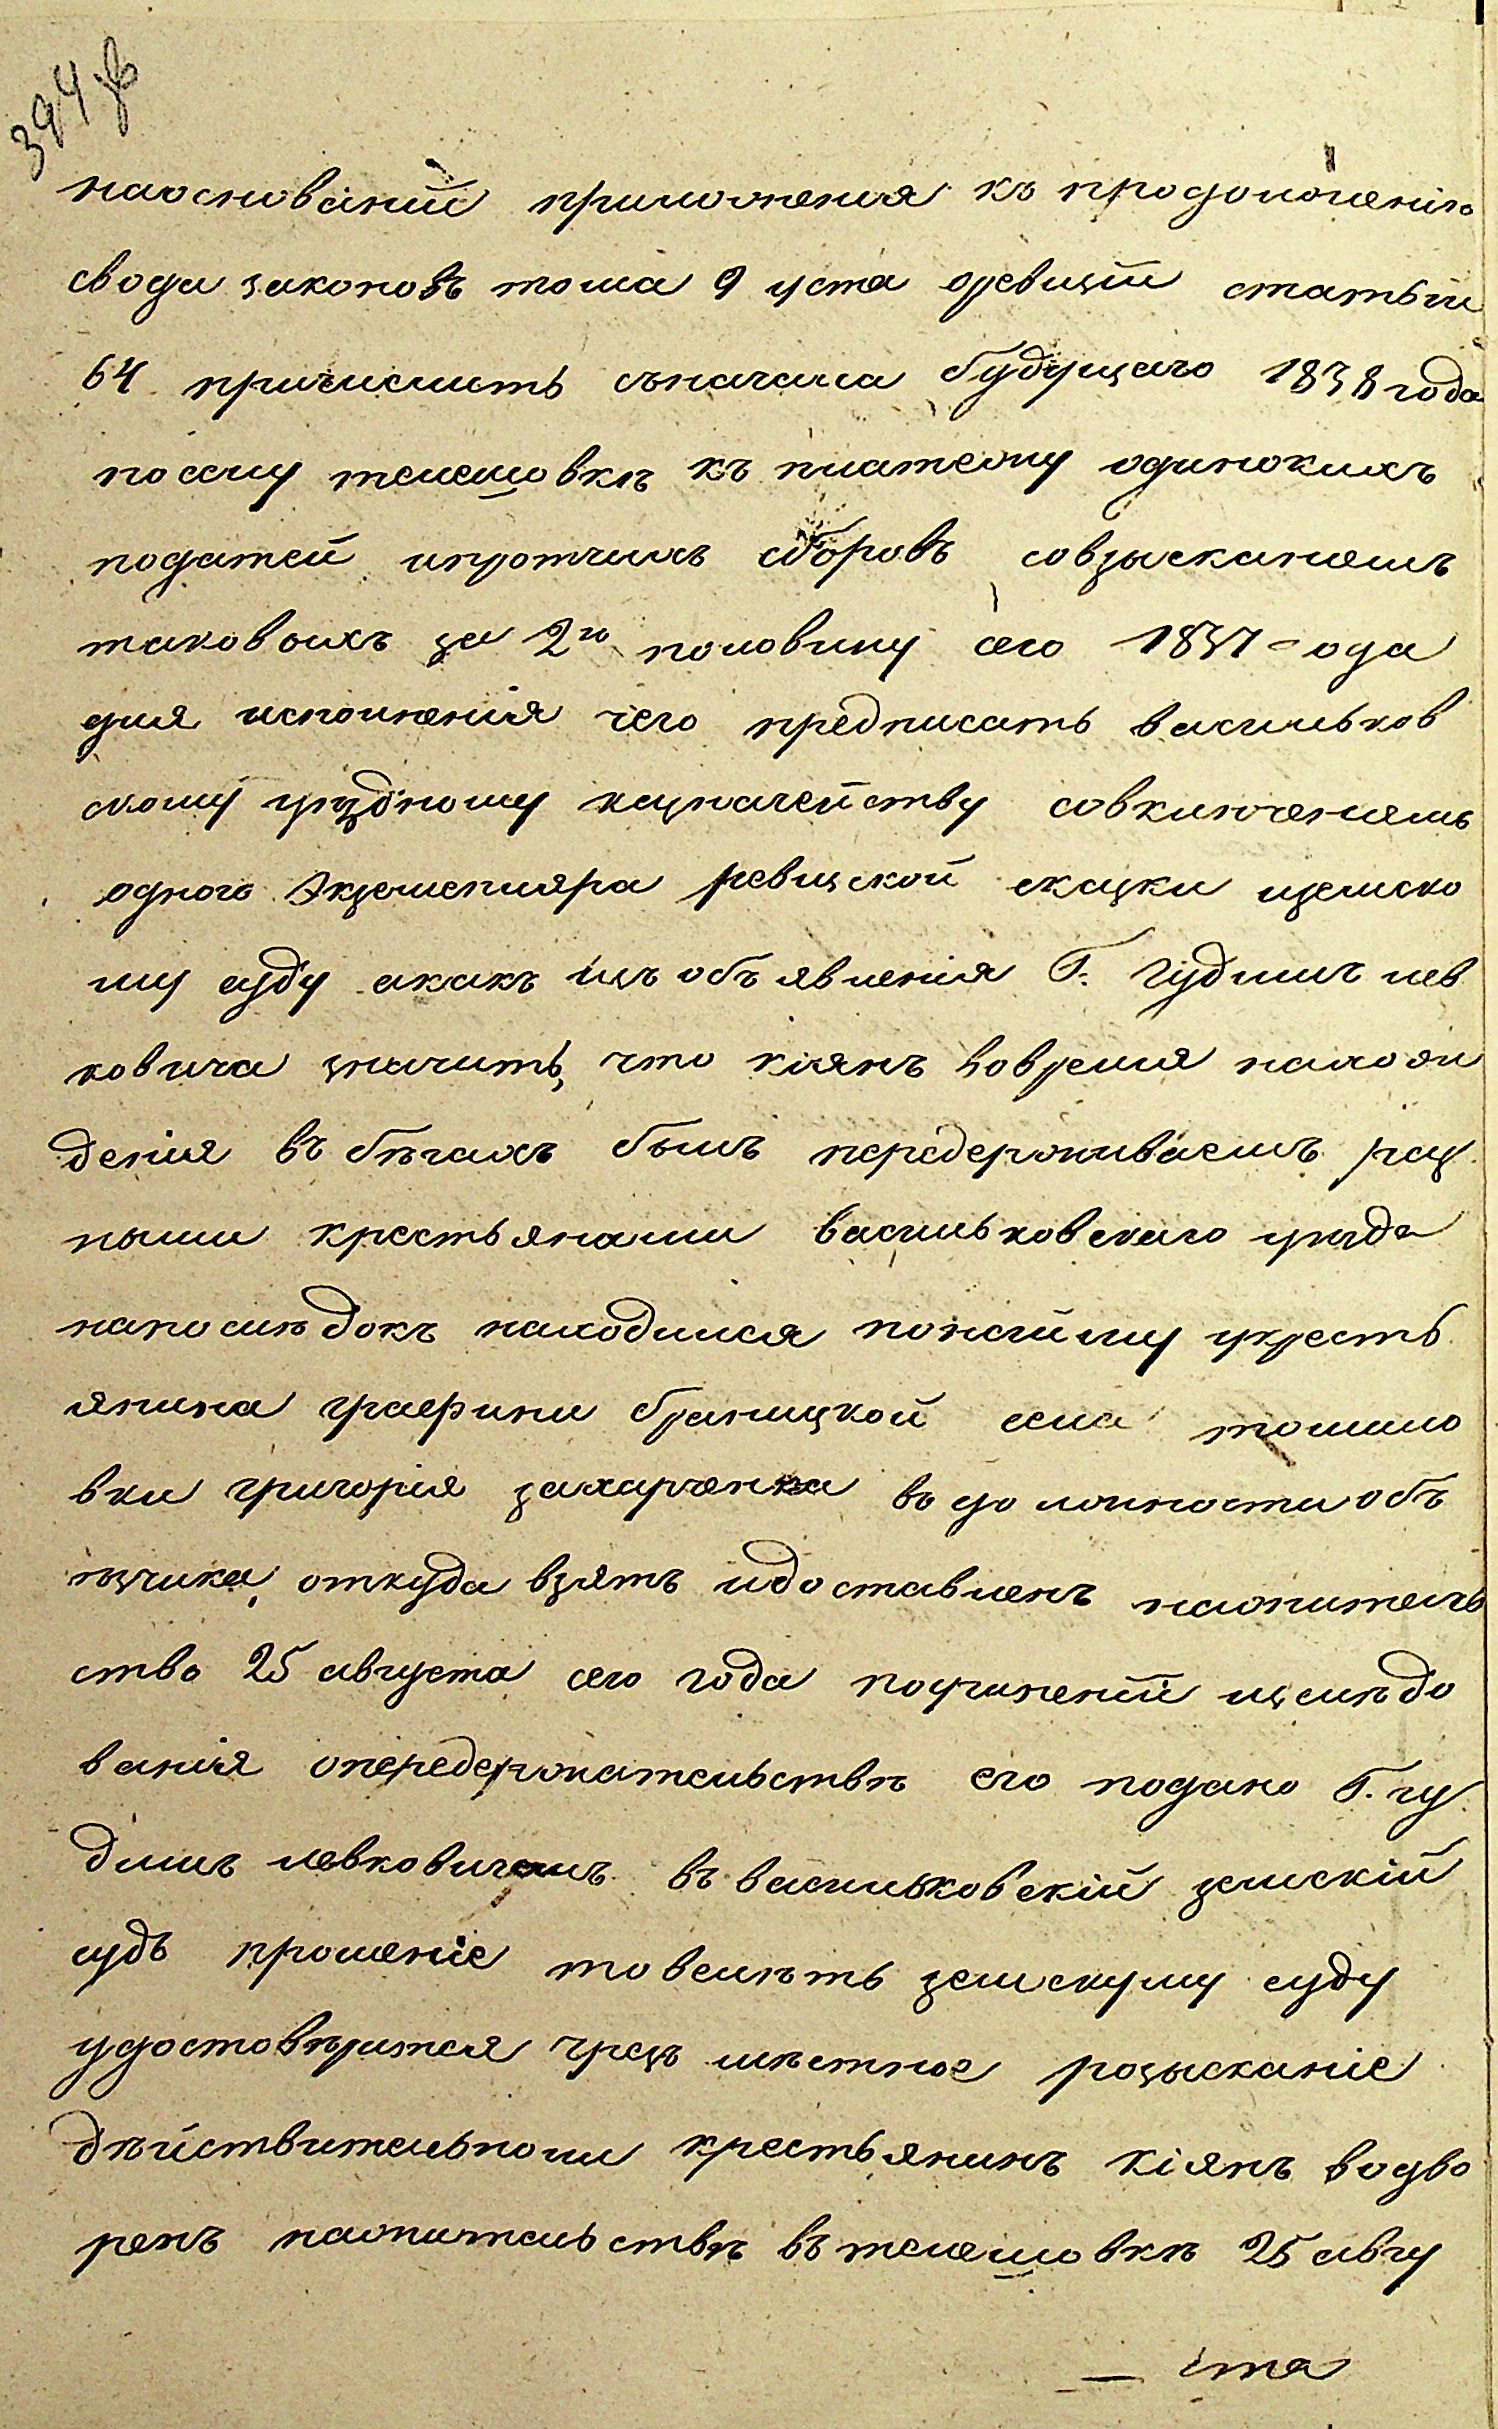 394 об
наоснованіи приложенія къ продолженію
свода законовъ тома 9 уста оревизіи статьи
64 причислить съначала будущаго 1838 года
посему телешовкѣ къ платежу одинокихъ
податей ипротчихъ сборовъ совзысканіемъ
таковыхъ за 2ю половину сего 1837 года
для исполненія чего предписать васильков
скому уѣздному казначейству совключеніемъ
одного экземпляра ревизской сказки иземско
му суду акакъ изъ объявленія Г. Гудимъ лев
ковича значитъ, что кіянъ вовремя нахож
денія въ бѣгахъ былъ передерживаемъ раз
ными крестьянами васильковскаго уѣзда
напослѣдокъ находился понайму укресть
янина графини браницкой села томило
вки григорія захарченка въ должности объ
ѣзчика, откуда взятъ идоставленъ нажитель
ство 25 августа сего года поучиненіи изслѣдо
ванія опередержательствѣ его подано Г. гу
димъ левковичемъ въ васильковскій земскій
судъ прошеніе то велѣть земскуму суду
удостовѣрится чрезъ мѣстное розысканіе
дѣйствительноли крестьянинъ кіянъ водво
ренъ нажительствѣ въ телешовкѣ 25 авгу
— ста